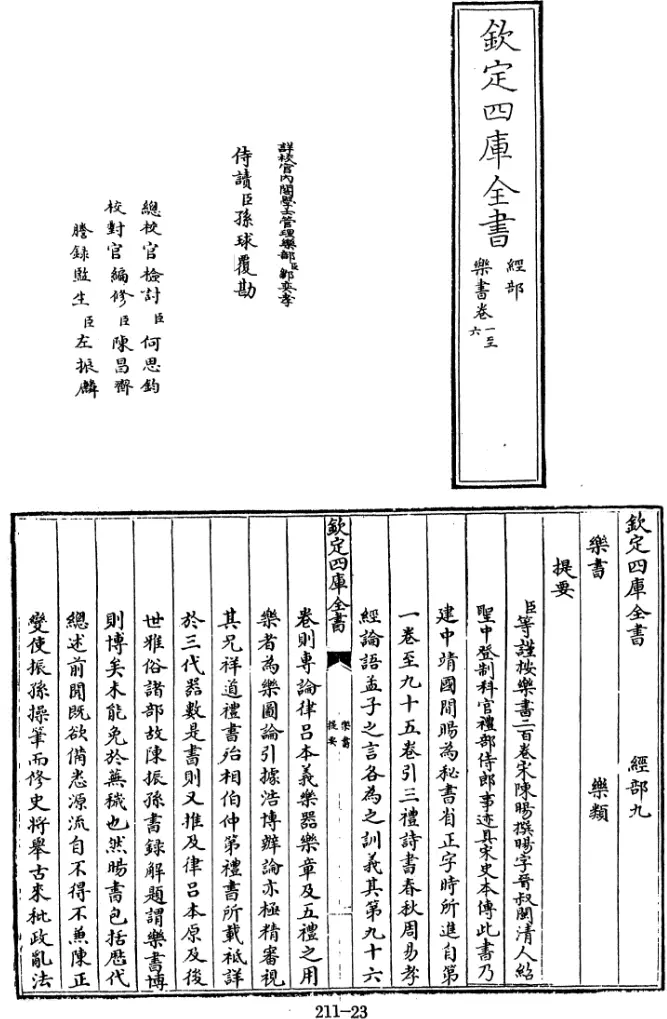 欽定四庫全書
經部
樂書卷一至六
詳校官內閣學士管理樂部臣鄒奕孝
侍讀臣孫球覆勘
總校官檢討臣何思鈞
校對官編修臣陳昌齊
謄錄監生臣左振麟
欽定四庫全書 經部九
樂書 樂類
提要
臣等謹按樂書二百卷宋陳暘撰暘字晉叔閩清人紹
聖中登制科官禮部侍郎事迹具宋史本傳此書乃
建中靖國間暘為秘書省正字時所進自第
一卷至九十五卷引三禮詩書春秋周易孝
經論語孟子之言各為之訓義其第九十六
欽定四庫全書
樂書
提要
卷則專論律呂本義樂器樂章及五禮之用
樂者為樂圖論引據浩博辯論亦極精審視
其兄祥道禮書殆相伯仲第禮書所載祗詳
於三代器數是書則又推及律呂本原及後
世雅俗諸部故陳振孫書錄解題謂樂書博
則博矣未能免於蕪穢也然暘書包括歷代
總述前聞既欲備悉源流自不得不兼陳正
變使振孫操筆而修史將舉古來秕政亂法
211-23